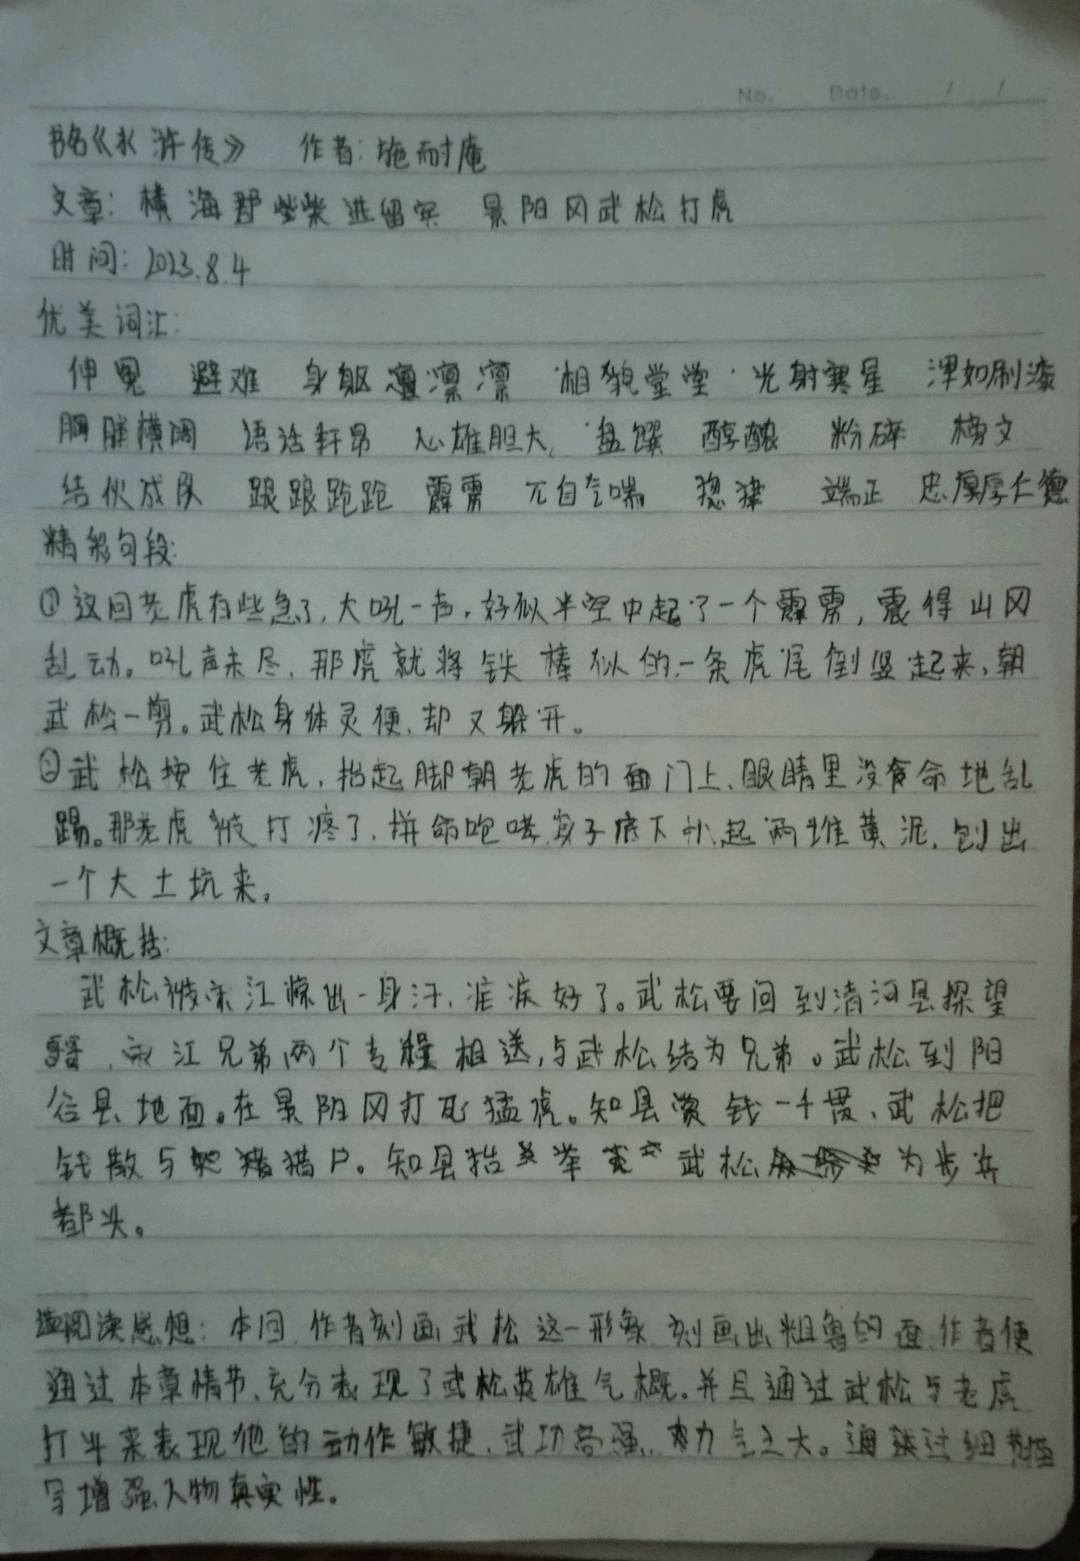 No. Date. / /
书名《水浒传》 作者:施耐庵
文章:横海郡柴进留宾 景阳冈武松打虎
时间:2023.8.4
优美词汇:
伸冤 避难 身躯凛凛 相貌堂堂 光射寒星 浑如刷漆
胸脯横阔 语话轩昂 心雄胆大 盘馔 醇酿 粉碎 榜文
结伙成队 踉踉跄跄 霹雳 兀自气喘 端正 忠厚仁德
精彩句段:
①这回老虎有些急了,大吼一声,好似半空中起了一个霹雳,震得山冈
乱动。吼声未尽,那虎就将铁棒似的一条虎尾倒竖起来,朝
武松一剪。武松身体灵便,却又躲开。
②武松按住老虎,抬起脚朝老虎的面门上、眼睛里没命地乱
踢。那老虎被打疼了,拼命咆哮,身子底下扒起两堆黄泥,刨出
一个大土坑来。
文章概括:
武松被宋江惊出一身汗,疟疾好了。武松要回到清河县探望
哥哥,宋江兄弟两个专程相送,与武松结为兄弟。武松到阳
谷县地面。在景阳冈打死猛虎。知县赏钱一千贯,武松把
钱散与猎户。知县抬举武松为步兵
都头。
阅读感想:本回,作者刻画武松这一形象,刻画出粗鲁的面,作者便
通过本章情节,充分表现了武松英雄气概。并且通过武松与老虎
打斗来表现他的动作敏捷,武功高强,力气之大。通过细节描
写增强人物真实性。